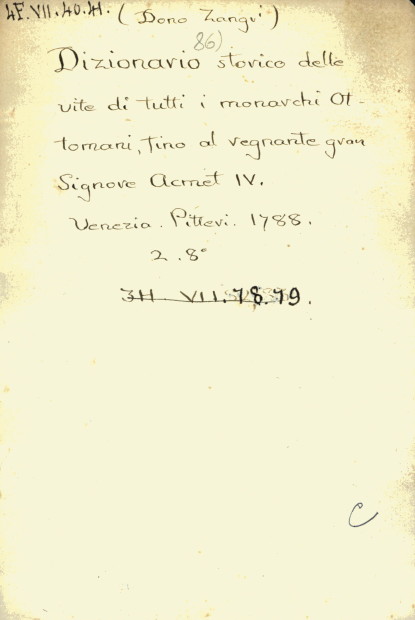 4F.VII.40.41. (Dono Zangri)
86)
Dizionario storico delle
vite di tutti i monarchi Ot-
tomani, fino al regnante gran
Signore Acmet IV.
Venezia. Pitteri. 1788.
2. 8°
3H VII. 78.79.
C